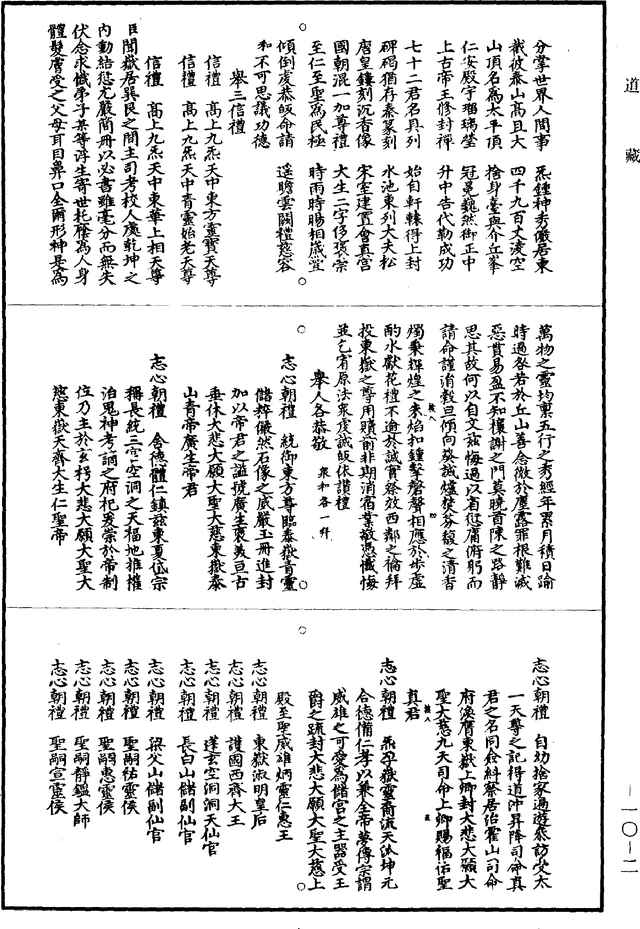 分掌世界人間事　炁鍾神秀儼居東
巍彼泰山高且大　四千九百丈凌空
山頂名爲太平頂　捨身臺與介丘峯
仁安殿宇瑩　冠冕巍然御正中
上古帝王修封禪　升中告代勒成功
七十二君名具列　始自軒轅得上封
碑碣猶存秦篆刻　水池東列大夫松
唐皇鏤刻沉香像　宋室建置會真宫
國朝混一加尊禮　大生二字侈褒崇
至仁至聖爲民極　時雨時暘相感宜
傾倒虔恭皈命請　遥瞻雲闕禮慈容
和不可思議功德
舉三信禮
信禮　高上九炁天中東方靈寶天尊
信禮　高上九炁天中青靈始老天尊
信禮　高上九炁天中東華上相天尊
臣聞嶽居巽艮之間主司考校人處乾坤之
内動結愆尤嚴簡册以必書雖毫分而無失
伏念求懺弟子某等浮生寄世托廕爲人身
體髮膚受之父母耳目鼻口全爾形神是爲
萬物之靈均稟五行之秀經年累月積日踰
時過咎若於丘山善念微於塵露罪根難滅
惡貫易盈不知禳謝之門莫曉首陳之路靜
思其故何以自文兹悔過以省愆庸俯躬而
請命謹涓穀旦傾向葵誠爐焚芬馥之清香
燭秉輝煌之朱焰扣鐘擊磬聲相應於步虛
酌水獻花禮不逾於誠實祭效西鄰之禴拜
投東嶽之尊用贖前非期消宿業敬憑懺悔
並乞宥原法衆虔誠皈依讚禮
舉人各恭敬　衆和各一拜
志心朝禮　統御東方尊臨泰嶽青靈
儲粹儼然石像之威嚴玉册進封
加以帝君之謚號廣生褒美亘古
垂休大悲大願大聖大慈東嶽泰
山青帝廣生帝君
志心朝禮　含德體仁鎮兹東夏岱宗
稱長統三宫空洞之天福地推權
治鬼神考詞之府祀爰崇於帝制
位乃主於玄枵大悲大願大聖大
慈東嶽天齊大生仁聖帝
志心朝禮　自幼捨家遍遊叅訪受太
一天尊之記得道沖昇降司命真
君之名同僉紏察居治霍山司命
府喚膺東嶽上卿封大悲大願大
聖大慈九天司命上卿賜福佑聖
真君
志心朝禮　炁孕嶽靈裔流天派坤元
合德備仁孝以兼全帝夢傳宗謂
威雄之可愛爲儲宮之主器受王
爵之疏封大悲大願大聖大慈上
殿至聖威雄炳靈仁惠王
志心朝禮　東嶽淑明皇后
志心朝禮　護國西齊大王
志心朝禮　蓬玄空洞洞天仙官
志心朝禮　長白山儲副仙官
志心朝禮　梁父山儲副仙官
志心朝禮　聖嗣祐靈侯
志心朝禮　聖嗣惠靈侯
志心朝禮　聖嗣靜鑑大師
志心朝禮　聖嗣宣靈侯
道藏
一〇-二